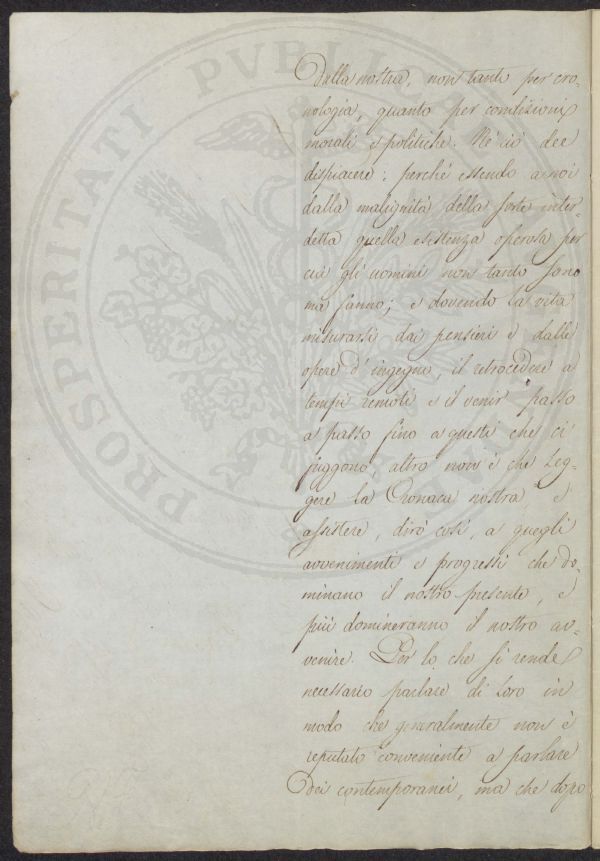 PROSPERITATI PVBLICAE
dalla nostra, non tanto per cro-
nologia, quanto per condizioni
morali e politiche. Né ciò dee
dispiacere: perché essendo a noi
dalla malignità della sorte inter-
detta quella esistenza operosa per
cui gli uomini non tanto sono
ma fanno; e dovendo la vita
misurarsi dai pensieri e dalle
opere d'ingegno, il retrocedere a
tempi remoti e il venir passo
a passo fino a questi che ci
fuggono, altro non è che leg-
gere la Cronaca nostra, e
assistere, dirò così, a quegli
avvenimenti e progressi che do-
minano il nostro presente, e
più domineranno il nostro av-
venire. Per lo che si rende
necessario parlare di loro in
modo che generalmente non è
reputato conveniente a parlare
dei contemporanei, ma che dopo